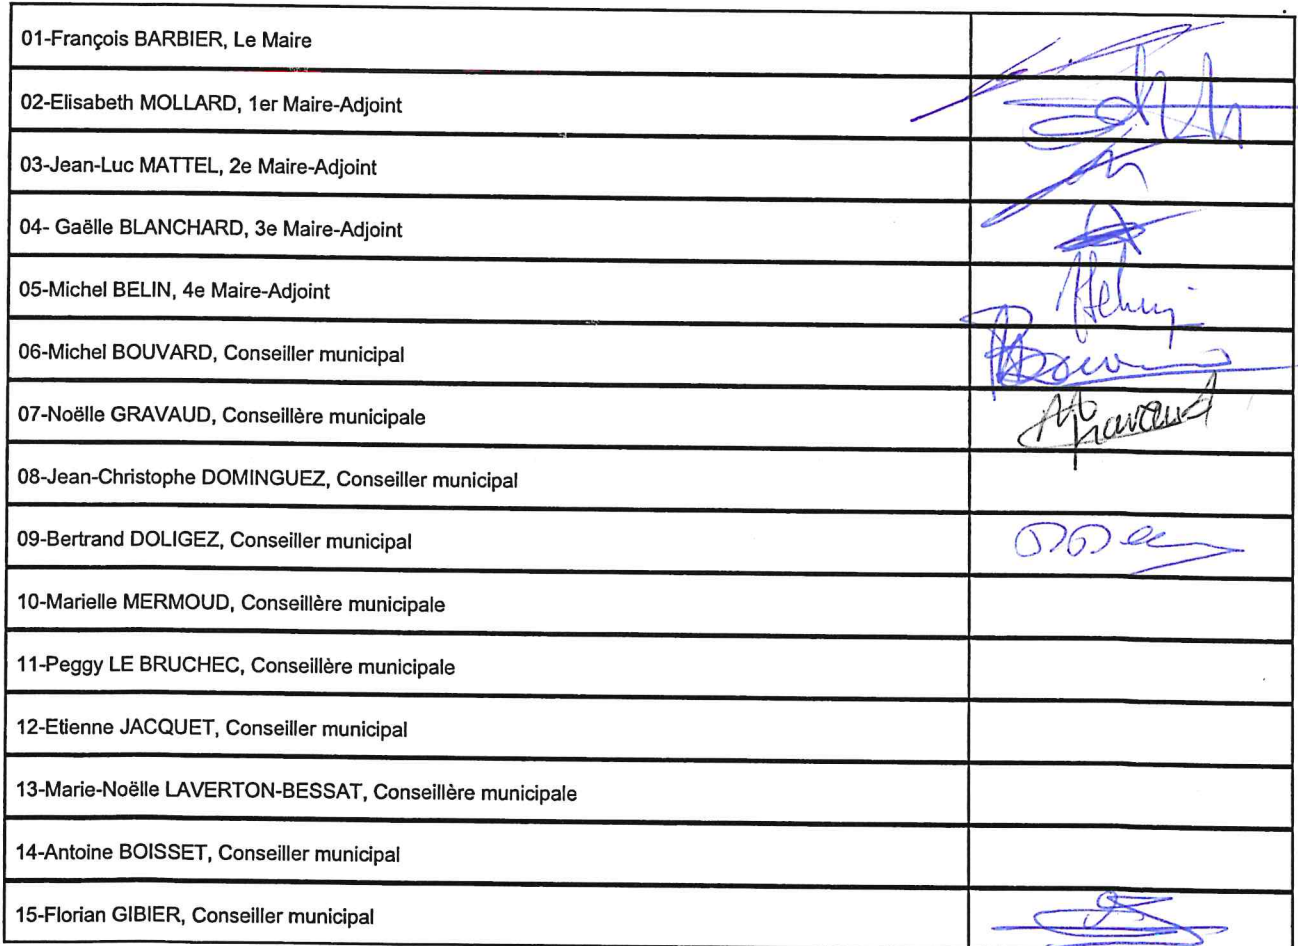 01-François BARBIER, Le Maire
02-Elisabeth MOLLARD, 1er Maire-Adjoint
03-Jean-Luc MATTEL, 2e Maire-Adjoint
04- Gaëlle BLANCHARD, 3e Maire-Adjoint
05-Michel BELIN, 4e Maire-Adjoint
06-Michel BOUVARD, Conseiller municipal
07-Noëlle GRAVAUD, Conseillère municipale
08-Jean-Christophe DOMINGUEZ, Conseiller municipal
09-Bertrand DOLIGEZ, Conseiller municipal
10-Marielle MERMOUD, Conseillère municipale
11-Peggy LE BRUCHEC, Conseillère municipale
12-Etienne JACQUET, Conseiller municipal
13-Marie-Noëlle LAVERTON-BESSAT, Conseillère municipale
14-Antoine BOISSET, Conseiller municipal
15-Florian GIBIER, Conseiller municipal